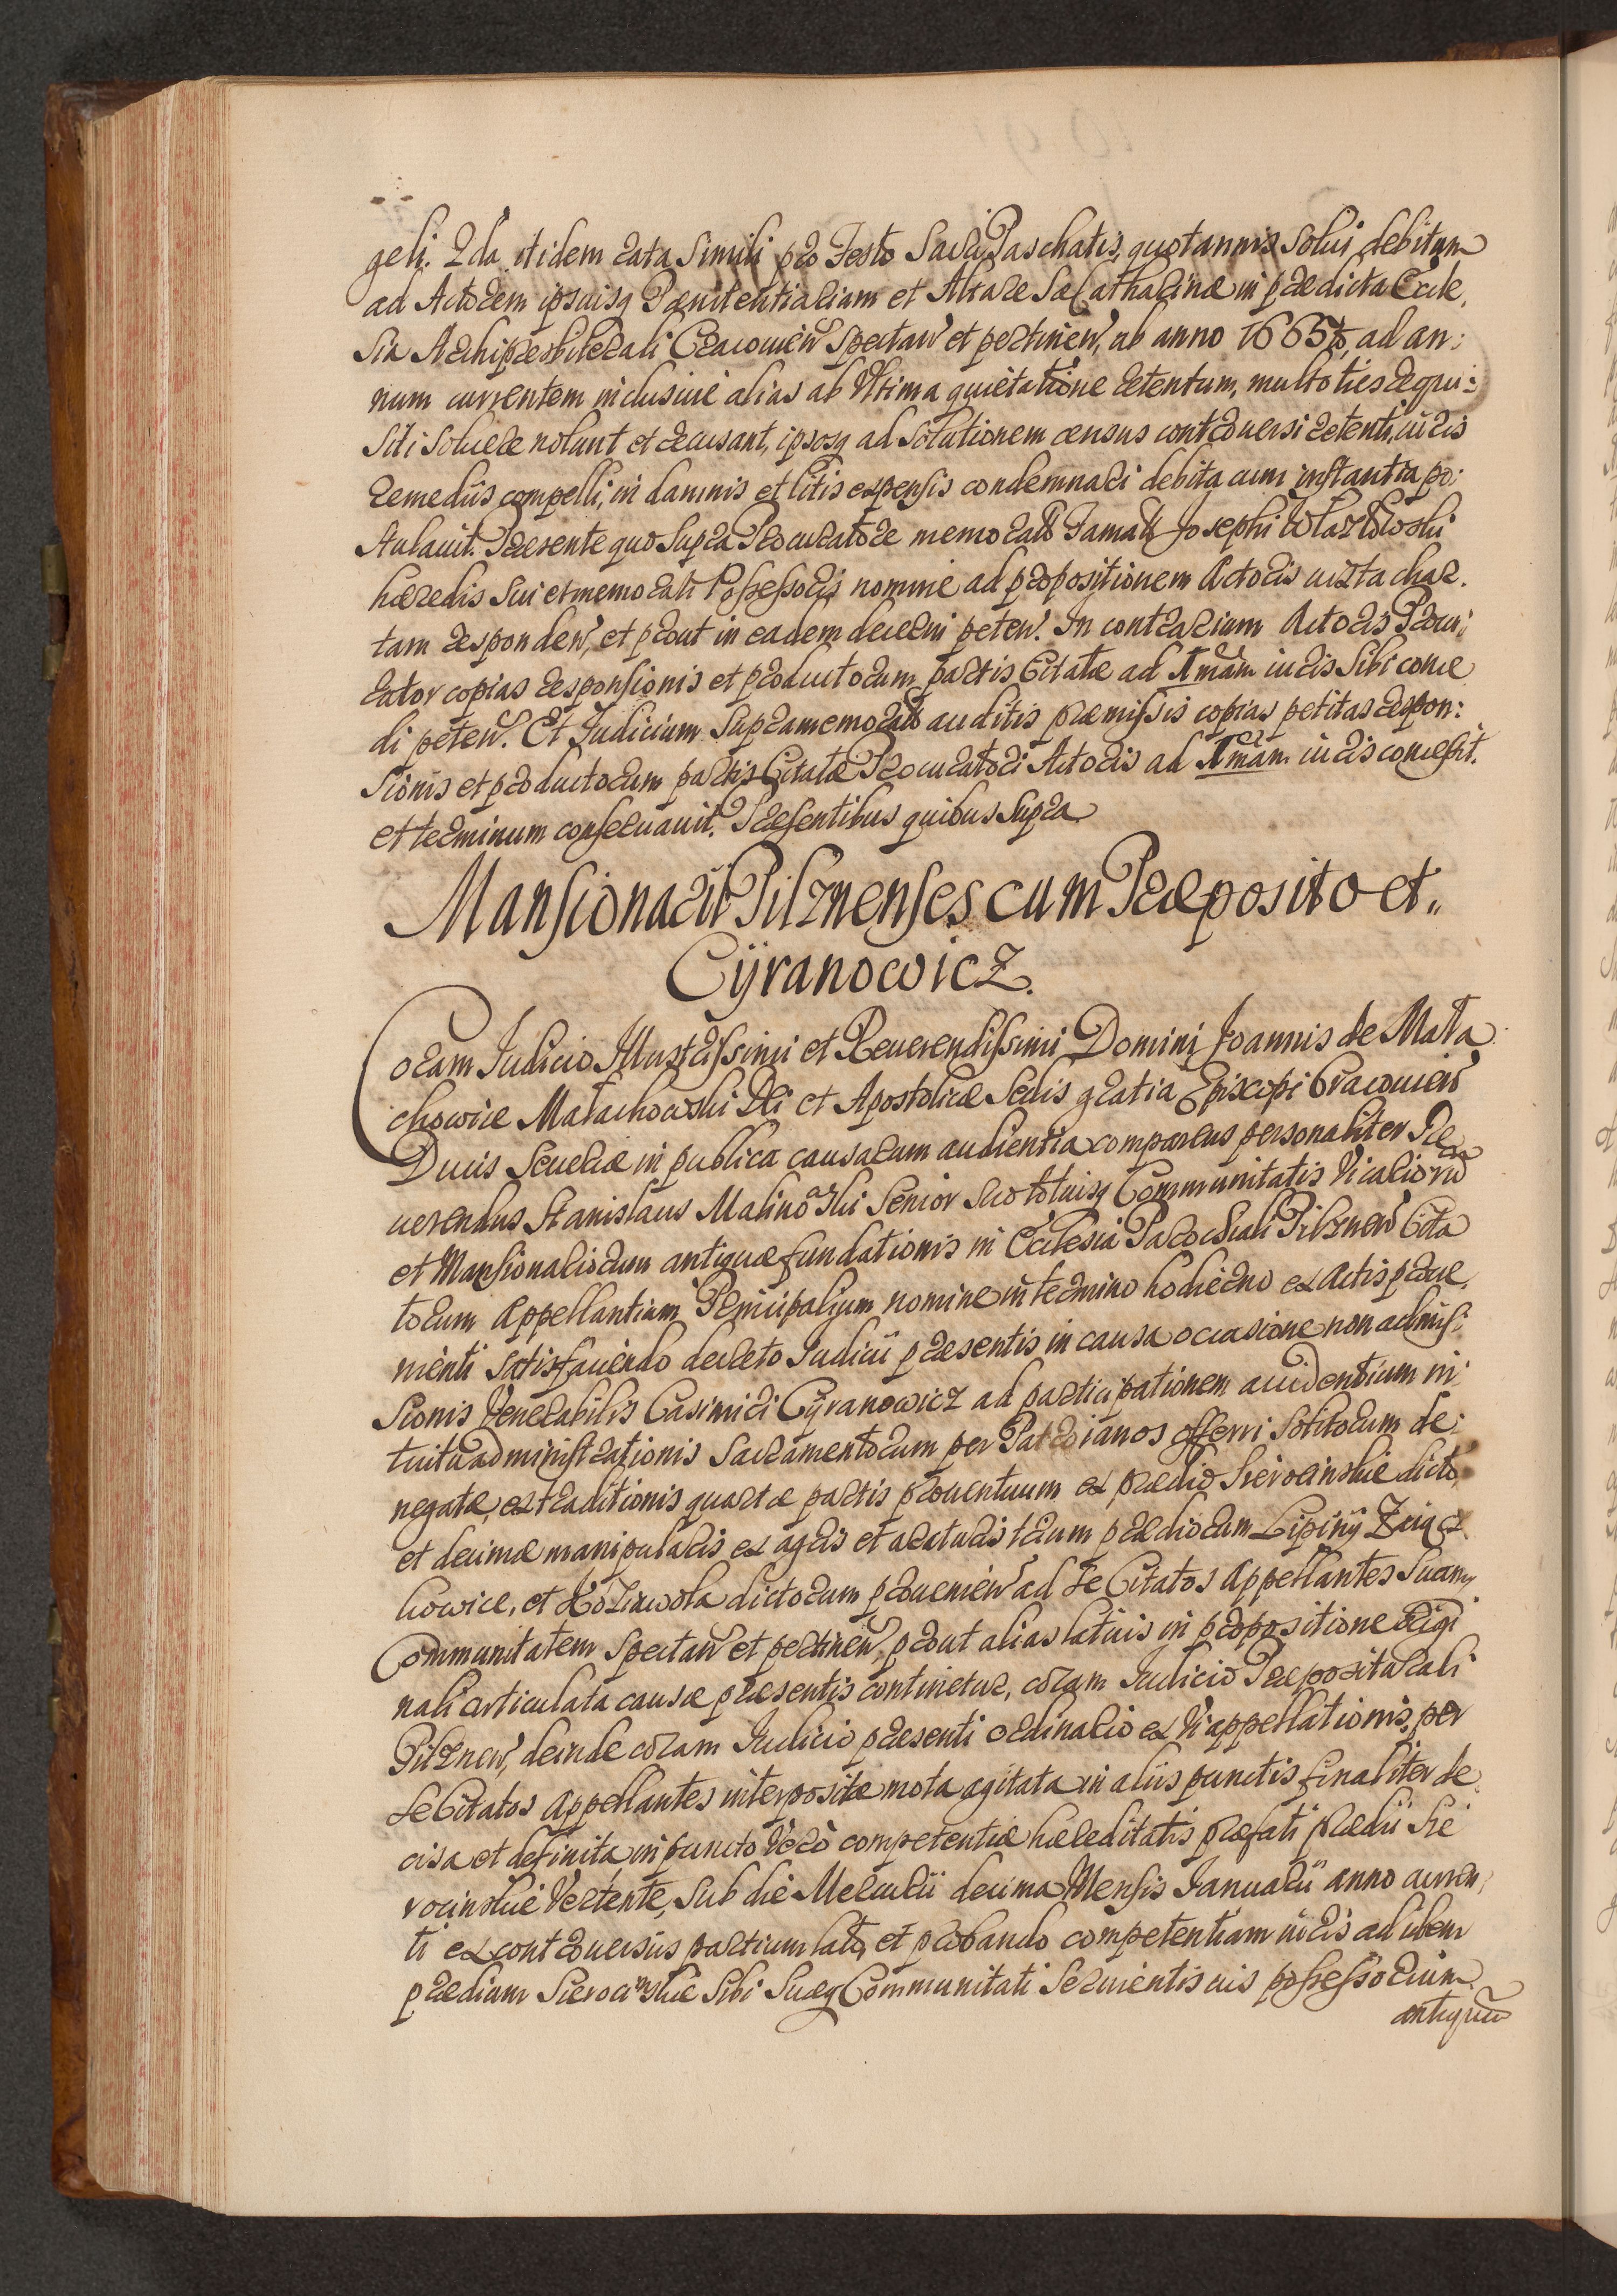 geli. 2da itidem rata simili pro Festo Sacri Paschatis, quotannis solui debitum
ad Actorem ipsiusq Pænitentiariam et Altare Sæ Catharinæ in prædicta Eccle,
sia Archipresbiterali Cracouien̄ Spectan̄ et pertinen̄, ab anno 1665to ad an:
num currentem inclusiue alias ab Vltima quietatione retentum, multoties requi:
siti soluere nolunt et recusant, ipsosq ad solutionem census controuersi retenti, iuris
remediis compelli, in damnis et litis expensis condemnari debita cum instantia po:
stulauit. Præsente quo supra Procuratore memorati Famati Josephi
hæredis sui et memorati Possessoris nomine ad propositionem Actoris iuxta char.
tam responden̄, et prout in eadem decerni peten̄. In contrarium Actoris Procu:
rator copias responsionis et productorum partis Citatæ ad Amam iuris sibi conce
di peten̄. Et Judicium supramemoratū auditis præmissis copias petitas respon:
sionis et productorum partis Citatæ Procuratori Actoris ad Amam iuris concessit.
et terminum conseruauit. Præsentibus quibus supra
Mansionarii Pilznenses cum Præposito et„
Cÿranowicz.
Coram Judicio Illustrissimi et Reuerendissimi Domini Joannis de Mała
chowice Małachowski Dei et Apostolicæ Sedis gratia Episcopi Cracouien̄
Ducis Seueriæ in publica causarum audientia comparens personaliter Re
uerendus Stanislaus Malinoski Senior suo totiusq Communitatis Vicariorū
et Mansionariorum antiquæ fundationis in Ecclesia Parochiali Pilznen̄ Cita
torum Appellantium Principalium nomine in termino hodierno ex Actis proue,
nienti satisfaciendo decreto Judicii præsentis in causa occasione non admis:
sionis Venerabilis Casimiri Cÿranowicz ad participationem accidentium in
tuitu administrationis Sacramentorum per Patroianos offerri solitorum de:
negatæ, extraditionis quartæ partis prouentuum ex prædio Sierocinskie dicto,
et decimæ manipularis ex agris et araturis trium prædiorum Lipinÿ
howice, et Kozia wola dictorum prouenien̄ ad se Citatos Appellantes suamq
Communitatem spectan̄ et pertinen̄, prout alias latius in propositione origi
nali articulata causæ præsentis continetur, coram Judicio Præpositurali
Pilznen̄, deinde coram Judicio præsenti ordinario ex Vi appellationis, per
se Citatos Appellantes interpositæ mota agitata in aliis punctis finaliter de
cisa et definita in puncto Verò competentiæ hæreditatis præfati prædii Sie
rocinskie Vertente, sub die Mercurii decima Mensis Januarii anno curren:
ti ex controuersiis partium lato, et probando competentiam iuris ad idem
prædium Sierocinskie sibi suæq Communitati seruientis cuis possessorium
antiquū